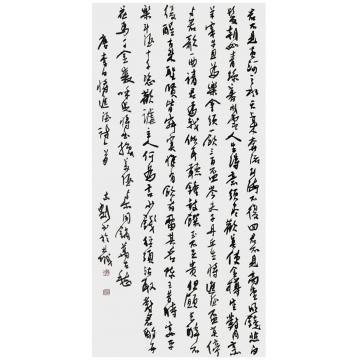 君不見黃河之水天上來奔流到海不復回君不見高堂明鏡悲白
髮朝如青絲暮成雪人生得意須盡歡莫使金樽空對月
且為樂會須一飲三百杯岑夫子丹丘生將進酒君莫停
與君歌一曲請君為我傾耳聽鐘鼓饌玉不足貴但願長醉不
復醒古來聖賢皆寂寞惟有飲者留其名陳王昔時宴平
樂斗酒十千恣歡謔主人何為言少錢徑須沽取對君酌五
花馬千金裘呼兒將出換美酒與爾同銷萬古愁
唐李白將進酒詩